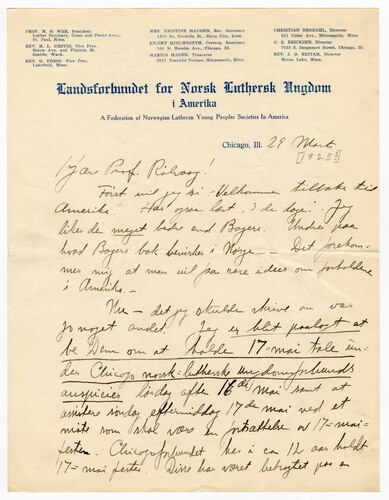 PROF. M. O. WEE, President
Luther Seminary, Como and Pierce Aves.,
St. Paul, Minn.
REV. M. L. NERVIG, Vice Pres.
Bacon Ave. and Virginia St.
Seattle, Wash.
REV. G. FOSSO, Vice Pres.
Lakefield, Minn.
MRS. KRISTINE HAUGEN, Rec. Secretary
EILERT HJELMSETH, Corresp. Secretary
548 N. Hamlin Ave., Chicago, Ill.
MARIUS HAGEN, Treasurer
2921 Franklin Terrace, Minneapolis, Minn.
CHRISTIAN BRODAHL, Director
621 Cedar Ave., Minneapolis, Minn.
P. B. ERICKSEN, Director
REV. J. O. REITAN, Director
Home Board, Minneapolis, Minn.
Landsforbundet for Norsk Luthersk Ungdom
i Amerika
A Federation of Norwegian Lutheran Young Peoples Societies In America
Chicago, Ill. 29 Mart
[1925?]
Kjære Prof. Rölvaag!
Först vil jeg si: Velkommen tilbake til
Amerika! Har læst "I de dage". Jeg
liker den meget bedre end Bojers. Undres paa
hvad Bojers bok bevirker i Norge. — Det forekom-
mer mig at man vil faa nære ideer om forholdene
i Amerika. —
Nu — det jeg skulde skrive om var
jo noget andet. Jeg er blit paalagt at
be Dem om at holde 17-mai tale un-
der Chicago norsk-lutherske ungdomsforbunds
auspicier lördag aften 16de mai samt at
assistere söndag eftermiddag 17de mai ved et
möte som skal være en fortsættelse av 17-mai-
festen. Chicagoforbundet her i ca 12 aar holdt
17-mai fester. Disse har været betragtet paa en